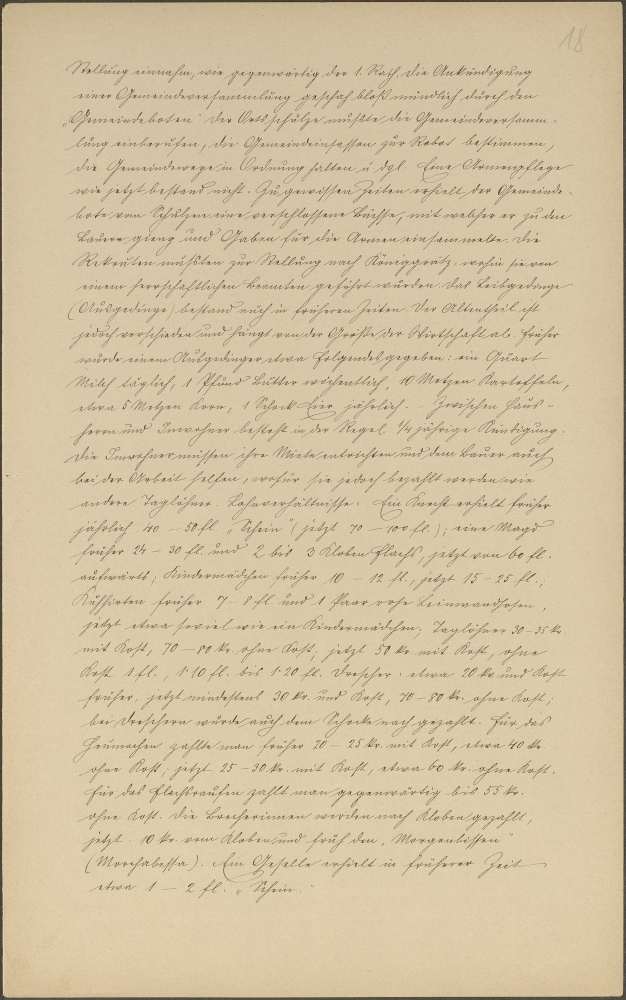 18
Stellung einnahm, wie gegenwärtig der 1. Rath. Die Ankündigung
einer Gemeindeversammlung geschah bloß mündlich durch den
„Gemeindeboten“ Der Ortsschulze mußte die Gemeindeversamm-
lung einberufen, die Gemeindeinsassen zur Robot bestimmen,
die Gemeindewege in Ordnung halten u. dgl. Eine Armenpflege
wie jetzt bestand nicht. Zu gewissen Zeiten erhielt der Gemeinde-
bote vom Schulzen eine verschlossene Büchse, mit welcher er zu den
Bauern gieng und Gaben für die Armen einsammelte. Die
Rekruten mußten zur Stellung nach Königgrätz, wohin sie von
einem herrschaftlichen Beamten geführt wurden. Das Leibgedinge
(Ausgedinge) bestand auch in früheren Zeiten. Der Altentheil ist
jedoch verschieden und hängt von der Größe der Wirtschaft ab. Früher
wurde einem Ausgedinger etwa folgendes gegeben: ein Quart
Milch täglich, 1 Pfund Butter wöchentlich, 10 Metzen Kartoffeln,
etwa 5 Metzen Korn, 1 Schock Eier jährlich. Zwischen Haus-
herrn und Inwohner besteht in der Regel 1/4 jährige Kündigung.
Die Inwohner müssen ihre Miete entrichten und dem Bauer auch
bei der Arbeit helfen, wofür sie jedoch bezahlt werden wie
andere Taglöhner. Lohnverhältnisse. Ein Knecht erhielt früher
jährlich 40 – 50 fl. „Schein“ (jetzt 70 – 100 fl.); eine Magd
früher 24 – 30 fl. und 2 bis 3 Kloben Flachs, jetzt von 60 fl.
aufwärts; Kindermädchen früher 10 – 12 fl., jetzt 15 – 25 fl.;
Kuhhirten früher 7 – 8 fl. und 1 Paar rohe Leinwandhosen,
jetzt etwa soviel wie ein Kindermädchen; Taglöhner 30 – 35 kr.
mit Kost, 70 – 80 kr. ohne Kost; jetzt 50 kr. mit Kost, ohne
Kost 1 fl., 1·10 fl. bis 1·20 fl. Drescher: etwa 20 kr. und Kost
früher, jetzt mindestens 30 kr. und Kost, 70 – 80 kr. ohne Kost;
bei Dreschern wurde auch dem Schocke nach gezahlt. Für das
Heumachen zahlte man früher 20 – 25 kr. mit Kost, etwa 40 kr.
ohne Kost; jetzt 25 – 30 kr. mit Kost, etwa 60 kr. ohne Kost.
Für das Flachsraufen zahlt man gegenwärtig bis 55 kr.
ohne Kost. Die Brecherinnen werden nach Kloben gezahlt,
jetzt 10 kr. vom Kloben und früh den „Morgenbissen“
(Morchabessa). Ein Geselle erhielt in früherer Zeit
etwa 1 – 2 fl. „Schein.“